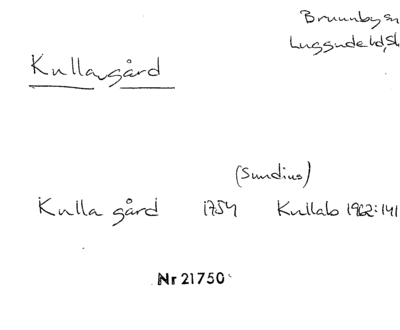 Brunnby sn
Luggude hd, Sk
Kulla gård
(Sundius)
Kulla gård 1754 Kullab 1962:141
Nr 21750